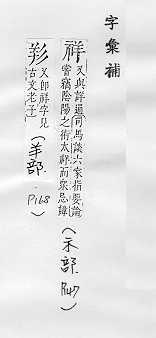 字彙補
祥
又與詳通司馬談六家指要論
嘗竊陰陽之術太祥而衆忌諱
(示部. P147)
又即祥字見
古文老子
(羊部. P168)